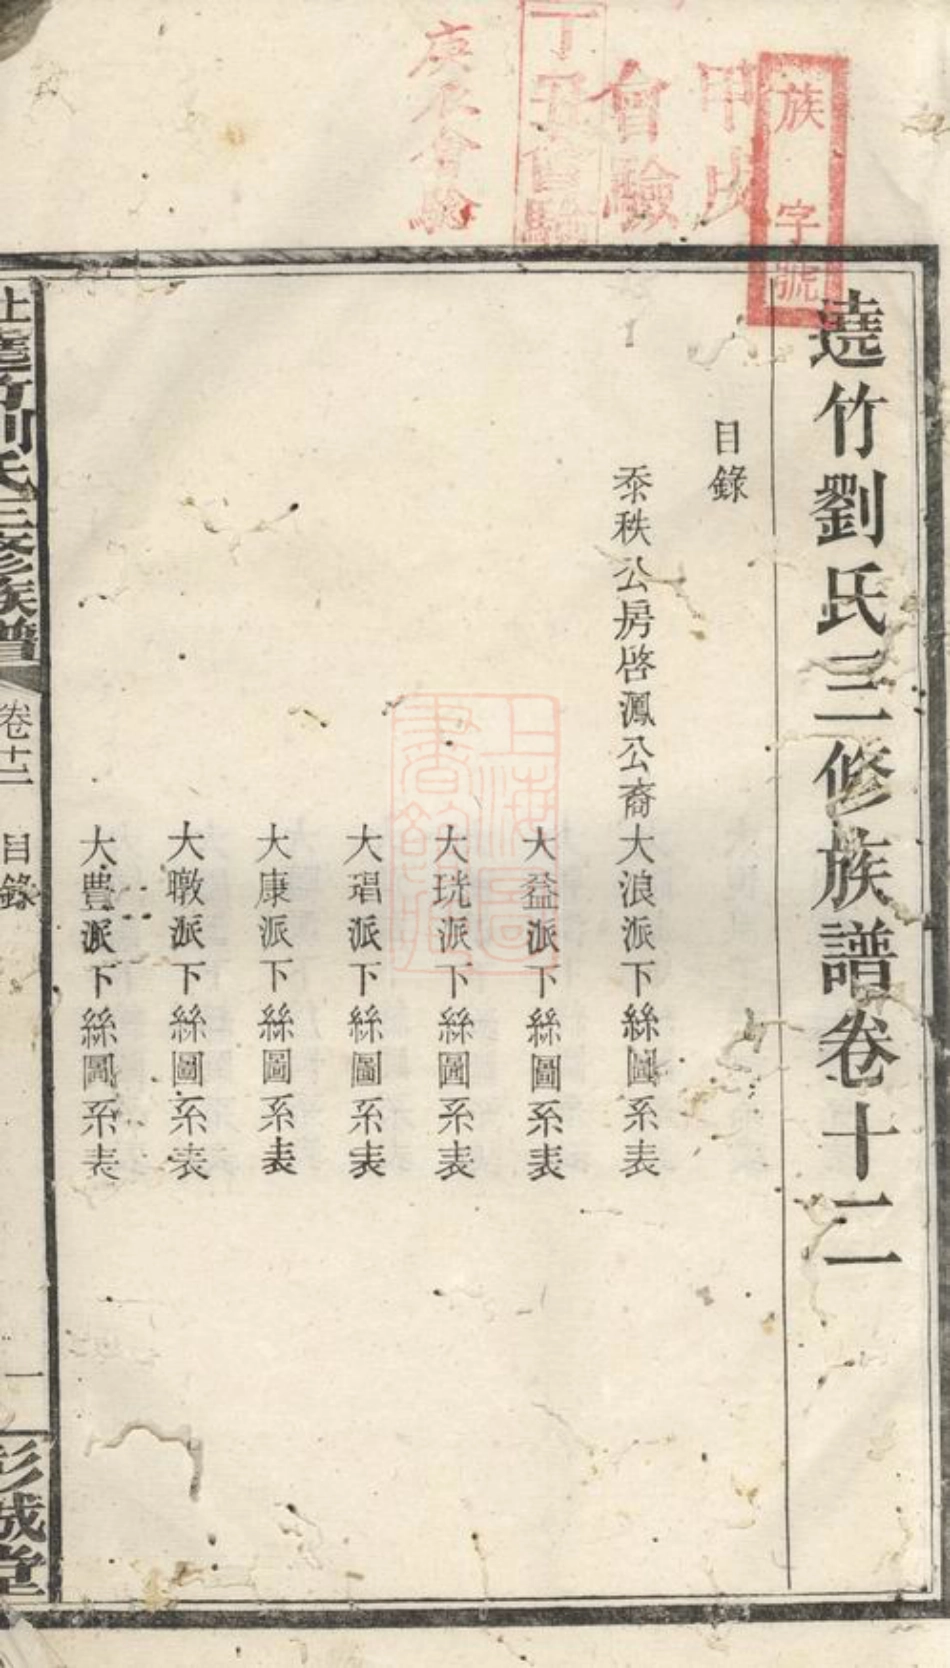 族字號
甲戌
會驗
丁丑會驗
庚辰會驗
遶竹劉氏三修族譜卷十二
目錄
泰秩公房啓鳳公裔大浪派下絲圖系表
大益派下絲圖系表
大珖派下絲圖系表
大琩派下絲圖系表
大康派下絲圖系表
大暾派下絲圖系表
大豊派下絲圖系表
上遶竹劉氏三修族譜
卷十二
目錄
一
彭城堂
上海圖書館藏